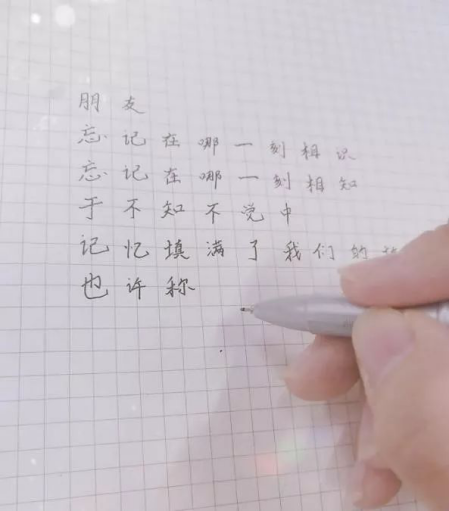 朋友
忘记在哪一刻相识
忘记在哪一刻相知
于不知不觉中
记忆填满了我们的
也许称